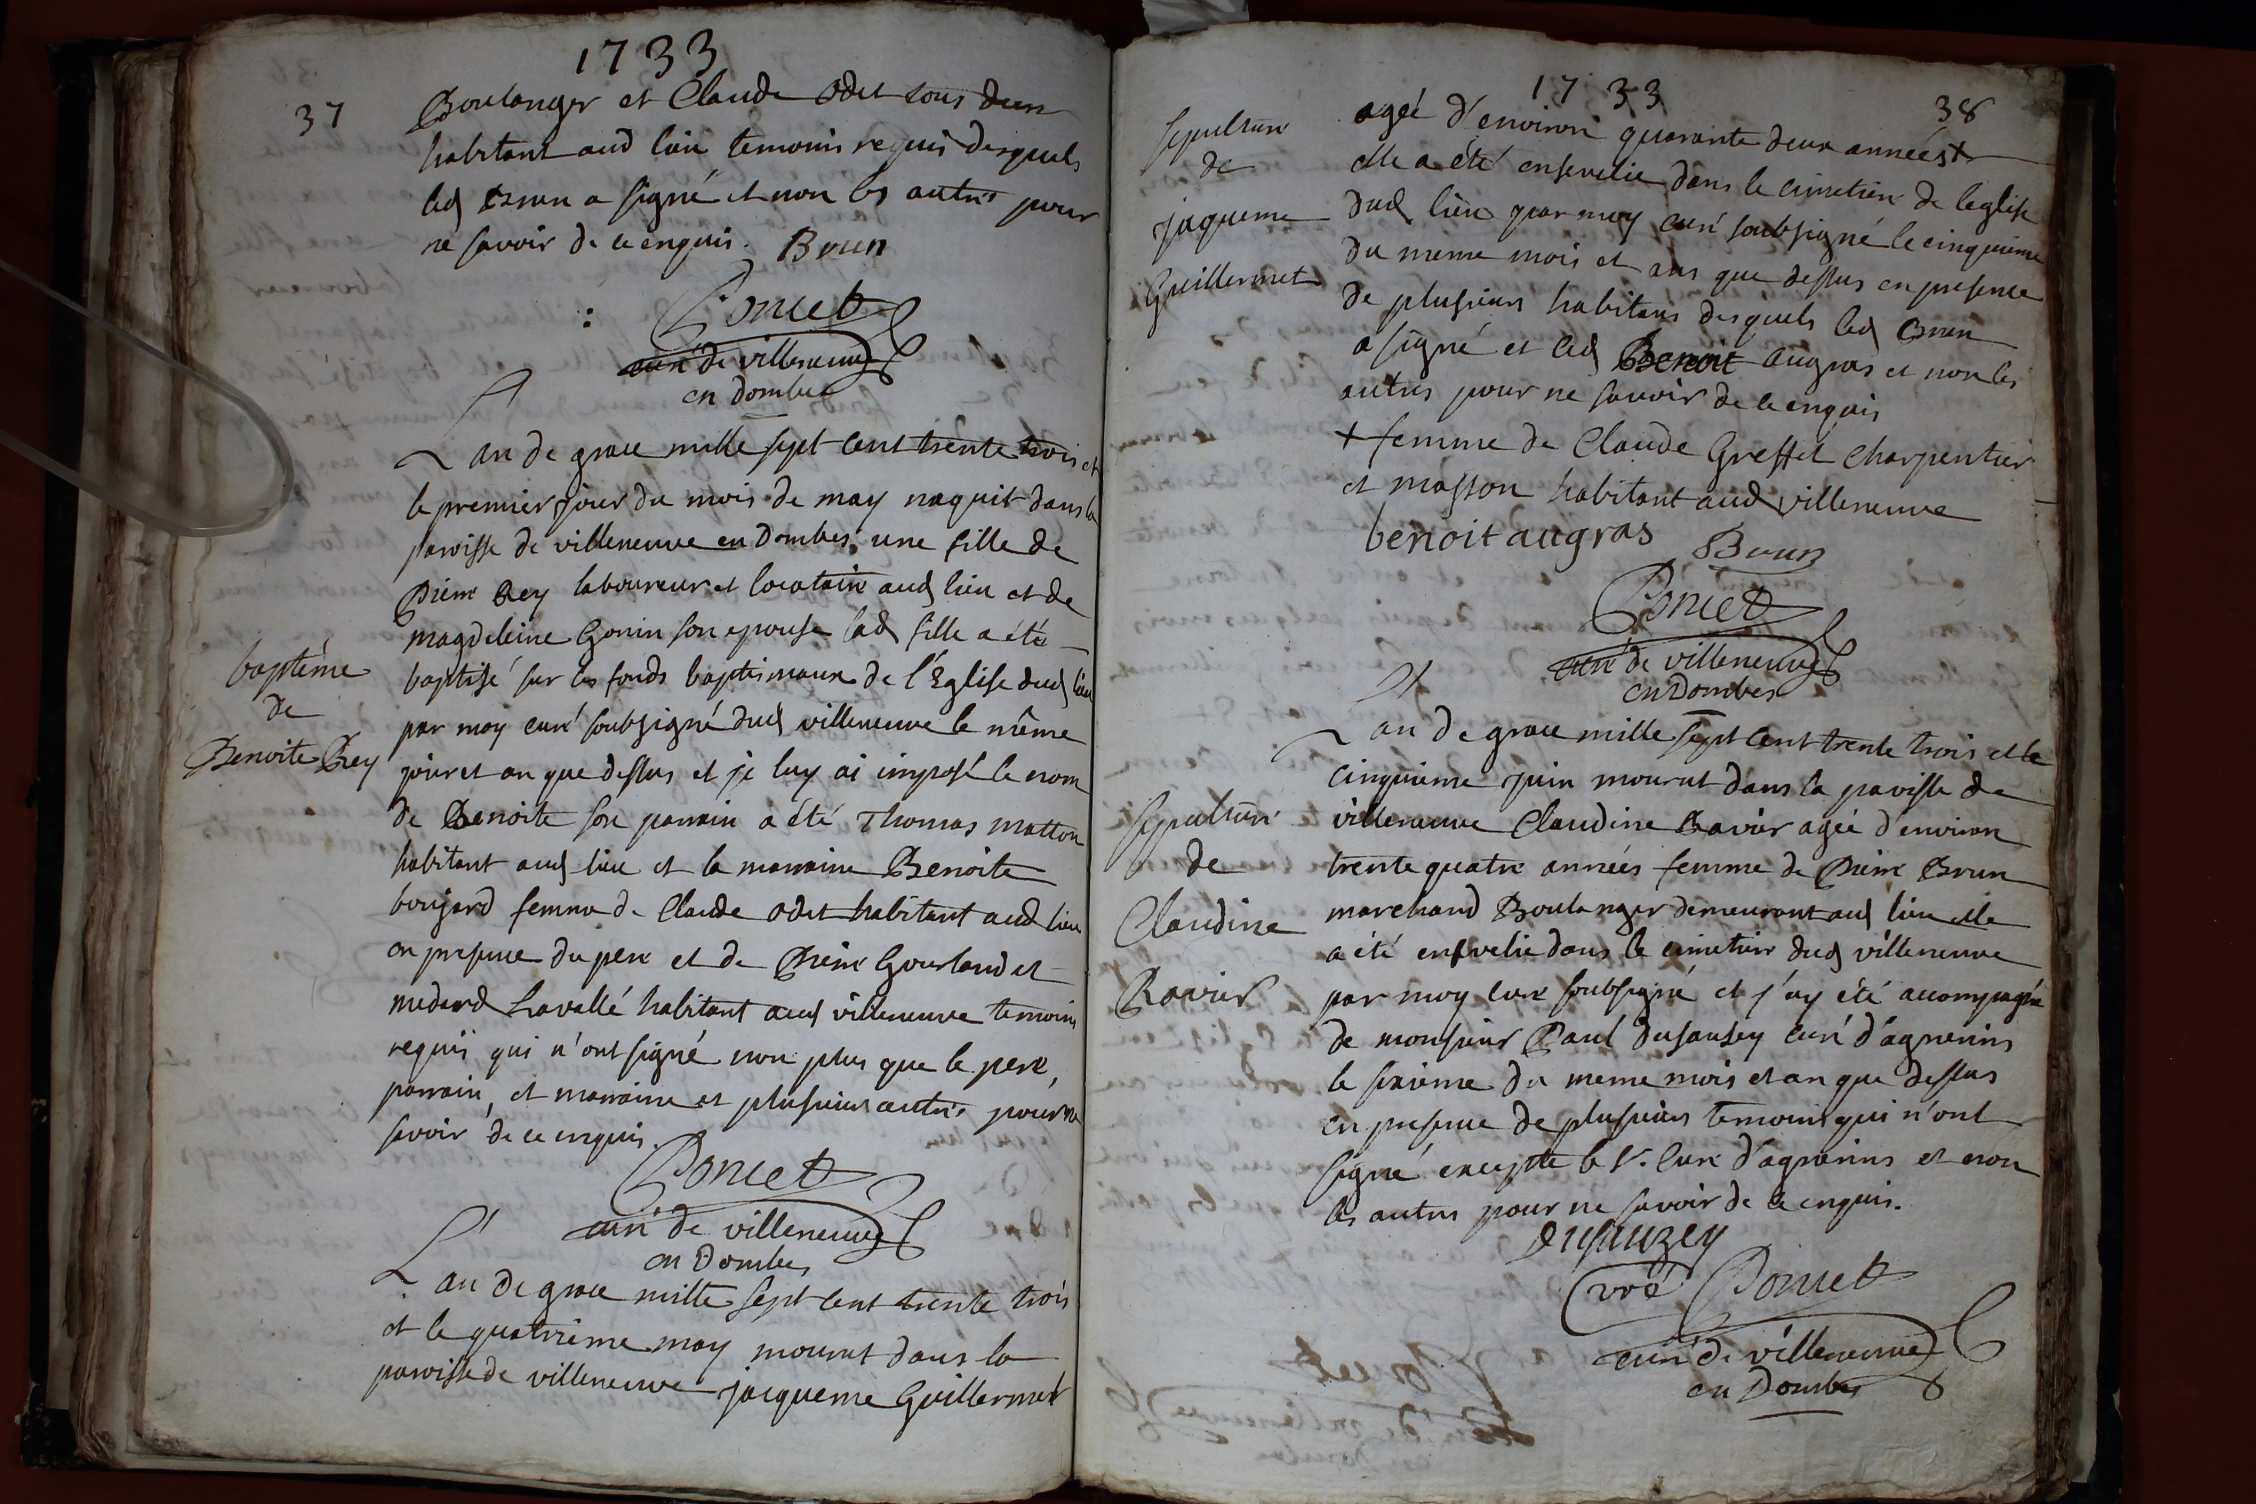 1733
37
Boulanger et Claude odet tous deux
habitant aud lieu temoins requis desquels
led Brun a signé et non les autres pour
ne savoir de ce enquis. Brun
Poncet
curé de villeneuve
en Dombes
L'an de grace mille sept cent trente trois et
le premier jour du mois de may naquit dans la
paroisse de villeneuve en Dombes une fille de
Pierre Rey laboureur et locataire aud lieu et de
magdeleine Gonin son epouse lad fille a été
baptisé sur les fonds baptismaux de l'Eglise dud lieu
baptême
de
Benoite Rey
par moy curé soubsigné dud villeneuve le même
jour et an que dessus et je luy ai imposé le nom
de Benoite son parrain a été Thomas matton
habitant aud lieu et la marraine Benoite
boujard femme de Claude odet habitant aud lieu
en presence du pere et de Pierre Gourland et
medard Lavallé habitant aud villeneuve temoins
requis qui n'ont signé non plus que le pere,
parrain, et marraine et plusieurs autres pour ne
savoir de ce enquis.
Poncet
curé de villeneuve
en Dombes
L'an de grace mille sept cent trente trois
et le quatrieme may mourut dans la
paroisse de villeneuve jacqueme Guillermet
1733
38
sepulture
de
jaqueme
Guillermet
agée d'environ quarante deux années +
elle a été ensevelie dans le cimetiere de leglise
dud lieu par moy curé soubsigné le cinquieme
du meme mois et ans que dessus en presence
de plusieurs habitans desquels led Brun
a signé et led Benoit augras et non les
autres pour ne savoir de ce enquis
+ femme de Claude Greffet charpentier
et masson habitant aud villeneuve
benoit augras Brun
Poncet
curé de villeneuve
en Dombes
L'an de grace mille sept cent trente trois et le
cinquieme juin mourut dans la paroisse de
sepulture
de
Claudine
Ravier
villeneuve Claudine Ravier agée d'environ
trente quatre années femme de Pierre Brun
marchand Boulanger demeurant aud lieu elle
a été ensevelie dans le cimetiere dud villeneuve
par moy curé soubsigné et j'ay été accompagné
de monsieur Paul dusauzey curé d'agnerins
le sixieme du meme mois et an que dessus
en presence de plusieurs temoins qui n'ont
signé excepté le Sr. curé d'agnerins et non
les autres pour ne savoir de ce enquis.
Dusauzey
Curé Poncet
curé de villeneuve
en Dombes